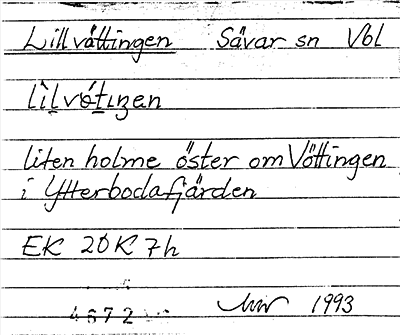 Lillvåttingen Sävar sn Vbl
lìlvǿtıŋen
liten holme öster om Vöttingen
i Ytterbodafjärden
EK 20K 7h
4672
1993